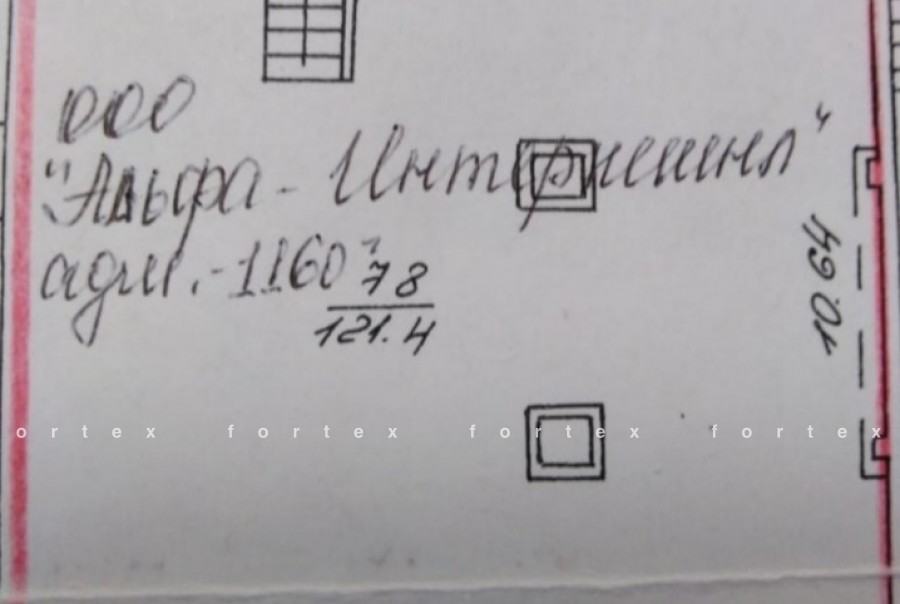 ООО
"Альфа - Интернешнл"
адм. - 1160
78
121.4
10.64
ortex fortex fortex fortex